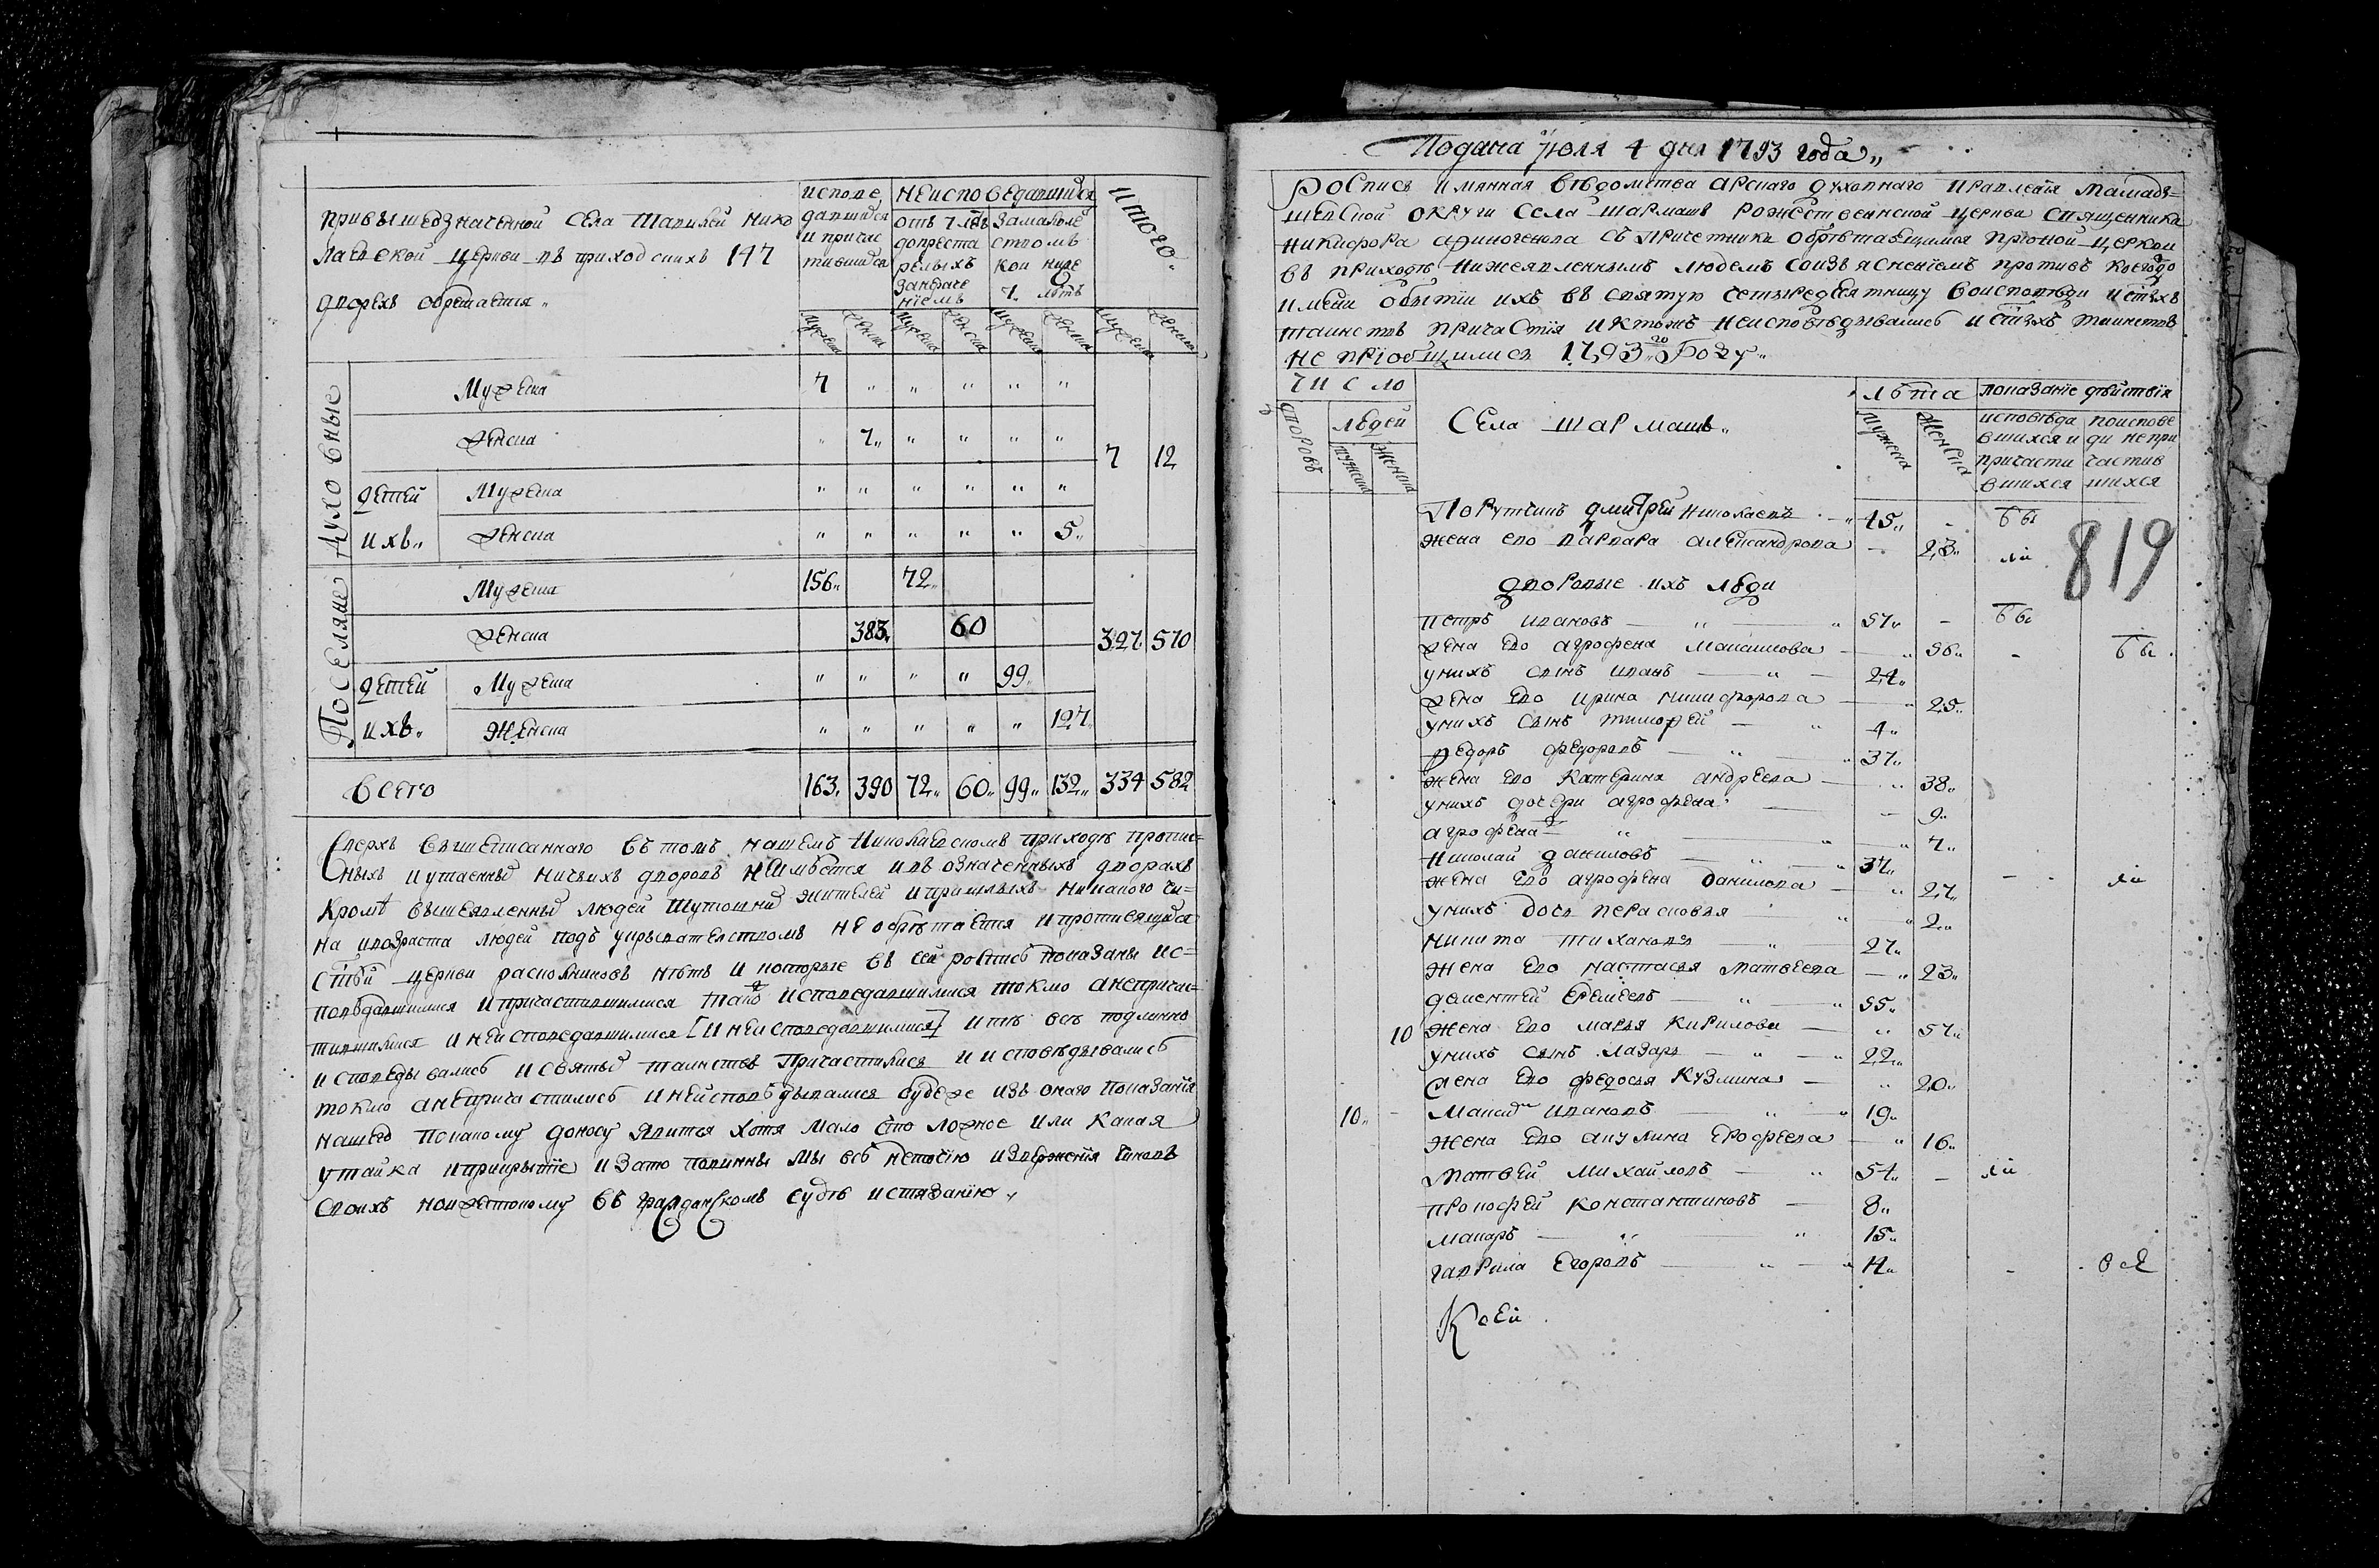 привышеозначенной села шапилей нико
лаевской церкви въ приходскихъ 147
дворехъ обретается
испове
давшихся
и причас
тившихся
неисповедавшихся
отъ 7 летъ
допреста
релыхъ
занераче
ниемъ
замалоле
стromъ
кои ниже
7 летъ
итого
мужеска женска мужеска женска мужеска женска мужеска женска
Духовные
Мужеска 7 „ „ „ „ „
женска „ 7 „ „ „ „
7 12
детей ихъ
Мужеска „ „ „ „ „ „
женска „ „ „ „ „ 5
Поселяне
Мужеска 156 72
женска 383 60
327 570
детей ихъ
Мужеска „ „ „ „ 99
Женска „ „ „ „ „ 127
всего 163 390 72 60 99 132 334 582
Сверхъ вышеписаннаго въ томъ нашемъ Николаевскомъ приходѣ пропи=
сныхъ и утаенныхъ ничьихъ дворовъ неимѣется и въ означенныхъ дворахъ
кромѣ вышеявленныхъ людей тутошнихъ жителей и пришлыхъ никакого чи=
на и возраста людей подъ укрывательствомъ не обрѣтается и противящихся
стѣй церкви раскольниковъ нѣтъ и которые въ сей росписѣ показаны ис=
повѣдавшимися и причастившимися такожъ исповедавшимися токмо анепричас=
тившимися и неисповедавшимися [и неисповедавшимися] и тѣ всѣ подлинно
исповедывались и святыхъ таинствъ причастились и исповѣдывались
токмо анепричастились и неисповѣдывались будеже изъ онаго показания
нашего покакому доносу явится хотя мало что ложное или какая
утайка и прикрытие и зато повинны мы всѣ неточию извержения чиновъ
своихъ но и жестокому въ гражданскомъ судѣ истязанию
Подана июля 4 дня 1793 года
Роспись имянная вѣдомства арскаго духовнаго правления мамады=
шевской округи села шармашъ рожественской церкви священника
никифора афиногенова съ причетники обрѣтающимися прионой церкви
въ приходѣ нижеявленнымъ людемъ соизъяснениемъ противъ коегождо
имени о бытии ихъ въ святую четыредесятницу воисповѣди и стыхъ
таинствъ причастия и ктожъ неисповѣдывались и стыхъ таинствъ
не приобщились 1793го году
число
дворовъ
людей
мужеска
женска
Села шармашъ
лѣта
мужеска
женска
показание дѣйствия
исповѣда
вшихся и
причасти
вшихся
поиспове
ди непри
частив
шихся
819
Порутчикъ дмитрей николаевъ 45 бы
жена ево варвара александрова 23 ли
дворовые ихъ люди
петръ ивановъ 57 бы
жена ево агрофена максимова 56 бы
унихъ сынъ иванъ 24
жена ево ирина никифорова 25
унихъ сынъ тимофей 4
федоръ федоровъ 37
жена ево катерина андреева 38
унихъ дочери агрофена 9
агрофена 7
николай даниловъ 37
жена ево агрофена данилова 27 ли
унихъ дочь перасковья 2
никита тихановъ 27
жена ево настасья матвеева 23
дементей еремеевъ 55
10 жена ево марья кирилова 57
унихъ сынъ лазарь 22
жена ево федосья кузмина 20
10 максимъ ивановъ 19
жена ево акулина ерофеева 16
матвей михайловъ 54 ли
прокофей константиновъ 8
макаръ 15
гаврила егоровъ 14 всѣ
Коей